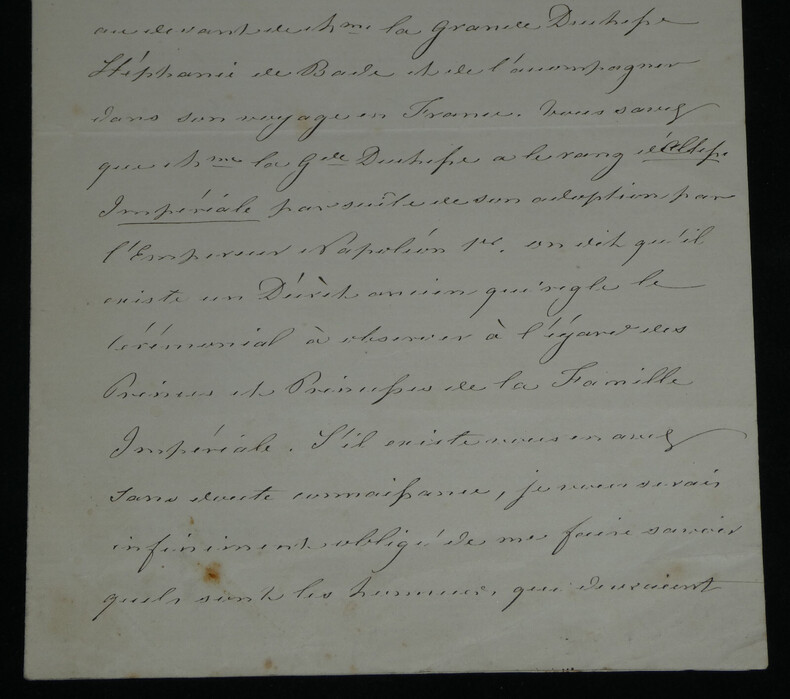 au devant de Mme la Grande Duchesse
Stéphanie de Bade et de l'accompagner
dans son voyage en France. Vous savez
que Mme la Gde Duchesse a le rang d'Altesse
Impériale par suite de son adoption par
l'Empereur Napoléon 1er. on dit qu'il
existe un Décrèt ancien qui règle le
cérémonial à observer à l'égard des
Princes et Princesses de la Famille
Impériale. S'il existe vous en avez
sans doute connaissance, je vous serais
infiniment obligé de me faire savoir
quels sont les honneurs qui devraient